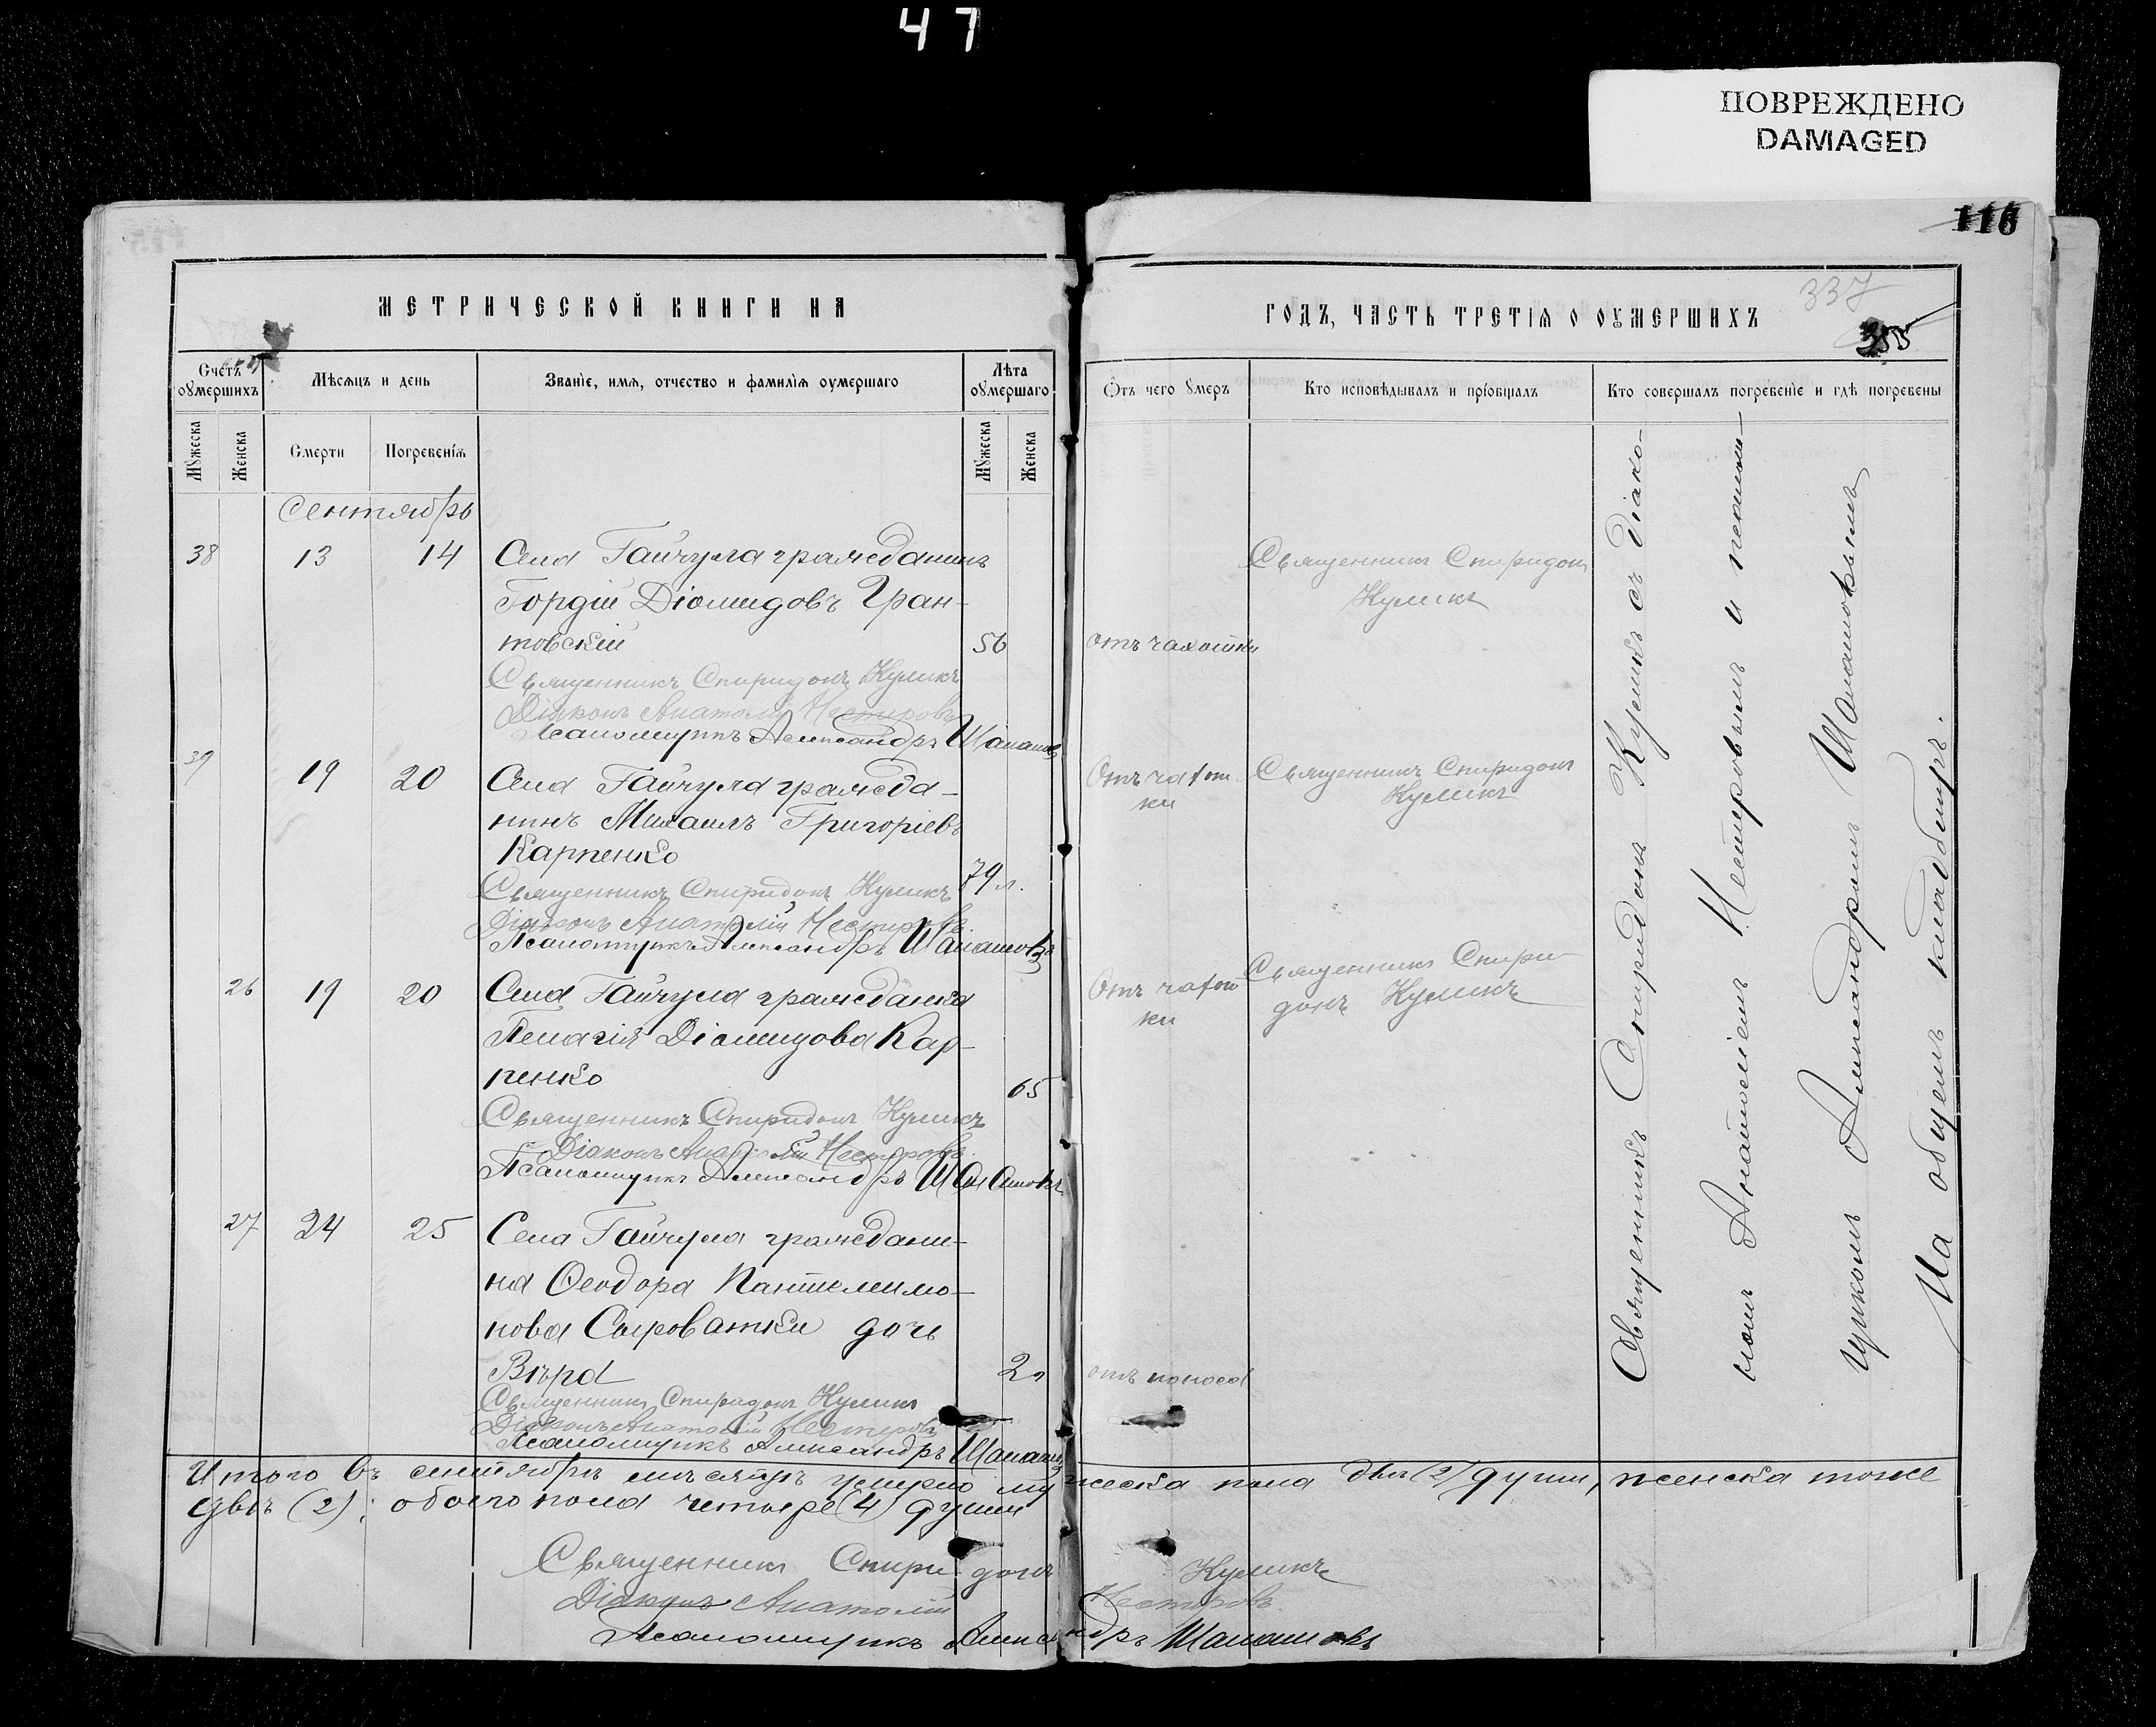 47
ПОВРЕЖДЕНО
DAMAGED
116
МЕТРИЧЕСКОЙ КНИГИ НА
ГОДЪ, ЧАСТЬ ТРЕТІЯ О ОУМЕРШИХЪ
337
355
Счетъ оумершихъ
Мѣсяцъ и день
Званіе, имя, отчество и фамилія оумершаго
Лѣта оумершаго
Отъ чего умеръ
Кто исповѣдывалъ и пріобщалъ
Кто совершалъ погребеніе и гдѣ погребены
Мужеска
Женска
Смерти
Погребенія
Мужеска
Женска
Сентябрь
38 13 14 Села Гайчула гражданинъ
Гордій Діомидовъ Гран-
товскій 56 отъ чахотки
Священникъ Спиридонъ
Куликъ
Священникъ Спиридонъ Куликъ
Діаконъ Анатолій Нестеровъ
Псаломщикъ Александръ
39 19 20 Села Гайчула гражда-
нинъ Михаилъ Григоріевъ
Карпенко 79 л.
Отъ чахот-
ки
Священникъ Спиридонъ
Куликъ
Священникъ Спиридонъ Куликъ
Діаконъ Анатолій Нестеровъ
Псаломщикъ Александръ
26 19 20 Села Гайчула гражданка
Пелагія Діомидова Кар-
пенко 65
Отъ чахот
ки
Священникъ Спири-
донъ Куликъ
Священникъ Спиридонъ Куликъ
Діаконъ Анатолій Нестеровъ
Псаломщикъ Александръ
27 24 25 Села Гайчула граждани-
на Ѳеодора Пантелеимо-
нова Сыроватки дочь
Вѣра 2 отъ поноса
Священникъ Спиридонъ Куликъ
Діаконъ Анатолій Нестеровъ
Псаломщикъ Александръ
Священникъ Спиридонъ Куликъ съ діако-
номъ Анатоліемъ Нестеровымъ и псалом-
щикомъ Александромъ
На общемъ кладбищѣ.
Итого въ сентябрѣ мѣсяцѣ умерло мужеска пола двѣ (2) души, женска тоже
двѣ (2); обоего пола четыре (4) души
Священникъ Спиридонъ Куликъ
Діаконъ Анатолій Нестеровъ
Псаломщикъ Александръ